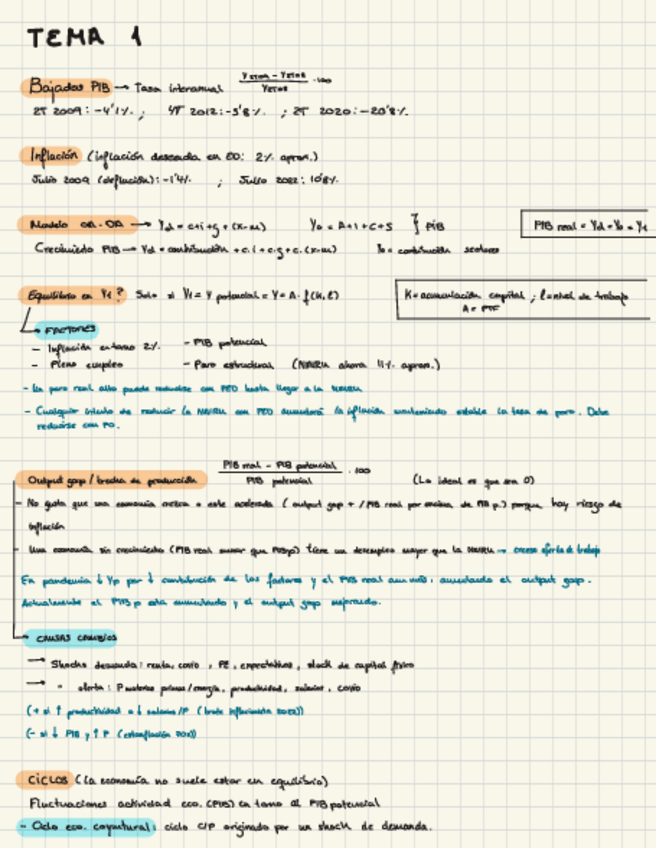 TEMA 1
Bajadas PIB → Tasa interanual
2T 2009: -4'1%. ; 4T 2012: -3'8%. ; 2T 2020: -20'8%.
Inflación (inflación deseada en : 2% aprox.)
Julio 2009 (deflución): -1'4%. ; Julio 2022: 10'8%.
Modelo OA-DA → Yd = c+i+g+(x-m) Yo = A+I+C+S } PIB
PIB real = Yd = Yo = Y1
Crecimiento PIB → Yd = contribución + c.i + c.g + c.(x-m) Yo = contribución sectores
Equilibrio en Y1? Solo si Y1 = Y potencial = Y = A · f(K, l)
K = acumulación capital ; l = nivel de trabajo
A = PTF
FACTORES
- Inflación entorno 2% - PIB potencial
- Pleno empleo - Paro estructural (NAIRU ahora 11% aprox.)
- Un paro real alto puede reducirse con PED hasta llegar a la NAIRU
- Cualquier intento de reducir la NAIRU con PED aumentará la inflación manteniendo estable la tasa de paro. Debe
reducirse con PO.
Output gap / brecha de producción PIB real - PIB potencial / PIB potencial · 100 (Lo ideal es que sea 0)
- No gusta que una economía crezca o este acelerada (output gap + / PIB real por encima de PIB p.) porque hay riesgo de
inflación
- Una economía sin crecimiento (PIB real menor que PIBp) tiene un desempleo mayor que la NAIRU → exceso oferta de trabajo
En pandemia ↓ Yp por ↓ contribución de los factores y el PIB real aun más, aumentando el output gap.
Actualmente el PIB p esta aumentando y el output gap mejorando.
CAUSAS CAMBIOS
→ Shocks demanda: renta, costo, PE, expectativas, stock de capital físico
→ " oferta: P materias primas/energía, productividad, salarios, costo
(+ si ↑ productividad o ↓ salarios/P )
(- si ↓ PIB y ↑ P )
CICLOS (La economía no suele estar en equilibrio)
Fluctuaciones actividad eco. (PIB) en torno al PIB potencial
- Ciclo eco. coyuntural: ciclo C/P originado por un shock de demanda.